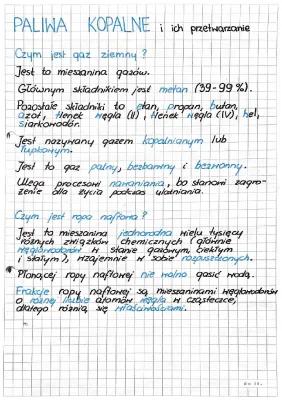 PALIWA KOPALNE i ich przetwarzanie
Czym jest gaz ziemny?
Jest to mieszanina gazów.
Głównym składnikiem jest metan (39-99%).
Pozostałe składniki to etan, propan, butan,
azot, tlenek węgla (II), tlenek węgla (IV), hel,
siarkowodór.
Jest nazywany gazem kopalnianym lub
łupkowym.
Jest to gaz palny, bezbarwny i bezwonny.
Ulega procesowi nawaniania, bo stanowi zagro-
żenie dla życia podczas ulatniania.
Czym jest ropa naftowa?
Jest to mieszanina jednorodna wielu tysięcy
różnych związków chemicznych (głównie
węglowodorów w stanie gazowym, ciekłym
i stałym), wzajemnie w sobie rozpuszczonych.
Płonącej ropy naftowej nie wolno gasić wodą.
Frakcje ropy naftowej są mieszaninami węglowodorów
o różnej liczbie atomów węgla w cząsteczce,
dlatego różnią się właściwościami.